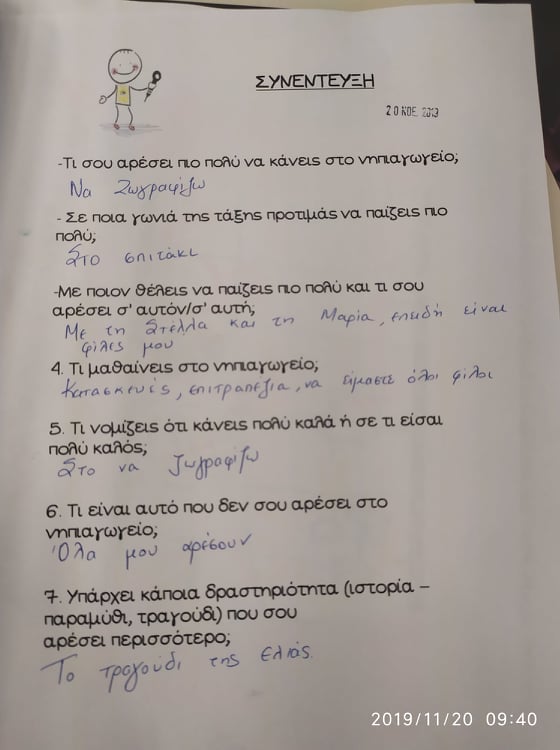 ΣΥΝΕΝΤΕΥΞΗ
20 ΝΟΕ. 2019
-Τι σου αρέσει πιο πολύ να κάνεις στο νηπιαγωγείο;
Να Ζωγραφίζω
- Σε ποια γωνιά της τάξης προτιμάς να παίζεις πιο
πολύ;
Στο σπιτάκι
-Με ποιον θέλεις να παίζεις πιο πολύ και τι σου
αρέσει σ' αυτόν/σ' αυτή;
Με τη Στέλλα και τη Μαρία, επειδή είναι
φίλες μου
4. Τι μαθαίνεις στο νηπιαγωγείο;
Κατασκευές, επιτραπέζια, να είμαστε όλοι φίλοι
5. Τι νομίζεις ότι κάνεις πολύ καλά ή σε τι είσαι
πολύ καλός;
Στο να ζωγραφίζω
6. Τι είναι αυτό που δεν σου αρέσει στο
νηπιαγωγείο;
Όλα μου αρέσουν
7. Υπάρχει κάποια δραστηριότητα (ιστορία –
παραμύθι, τραγούδι) που σου
αρέσει περισσότερο;
Το τραγούδι της ελιάς.
2019/11/20 09:40